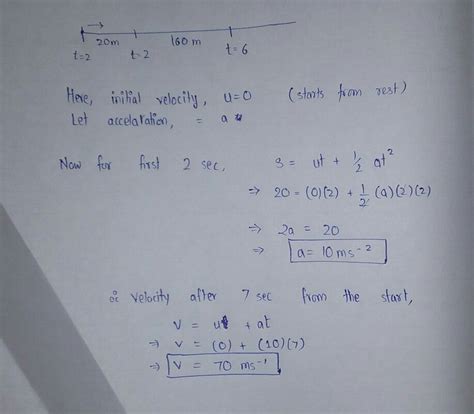 20m 160 m
t=2 t=2 t=6
Here, initial velocity, u=0 (starts from rest)
Let accelaration, = a
Now for first 2 sec, s = ut + 1/2 at²
⇒ 20 = (0)(2) + 1/2 (a)(2)(2)
⇒ 2a = 20
⇒ a = 10 ms⁻²
∴ Velocity after 7 sec from the start,
v = u + at
⇒ v = (0) + (10)(7)
⇒ v = 70 ms⁻¹